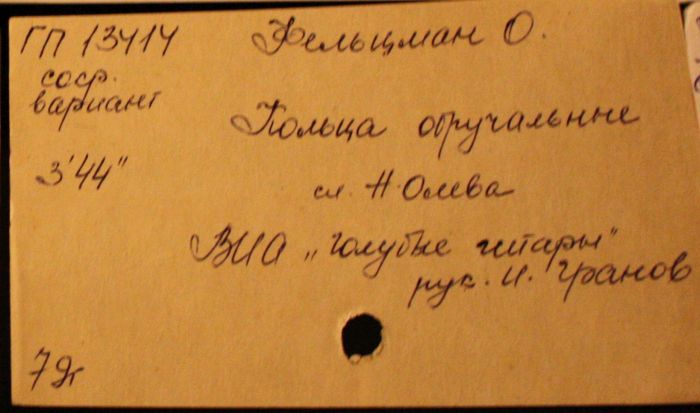 ГП 13414 Фельцман О.
соср.
вариант
Кольца обручальные
3'44"
сл. Н. Олева
ВИА "Голубые гитары"
рук. И. Гранов
79г